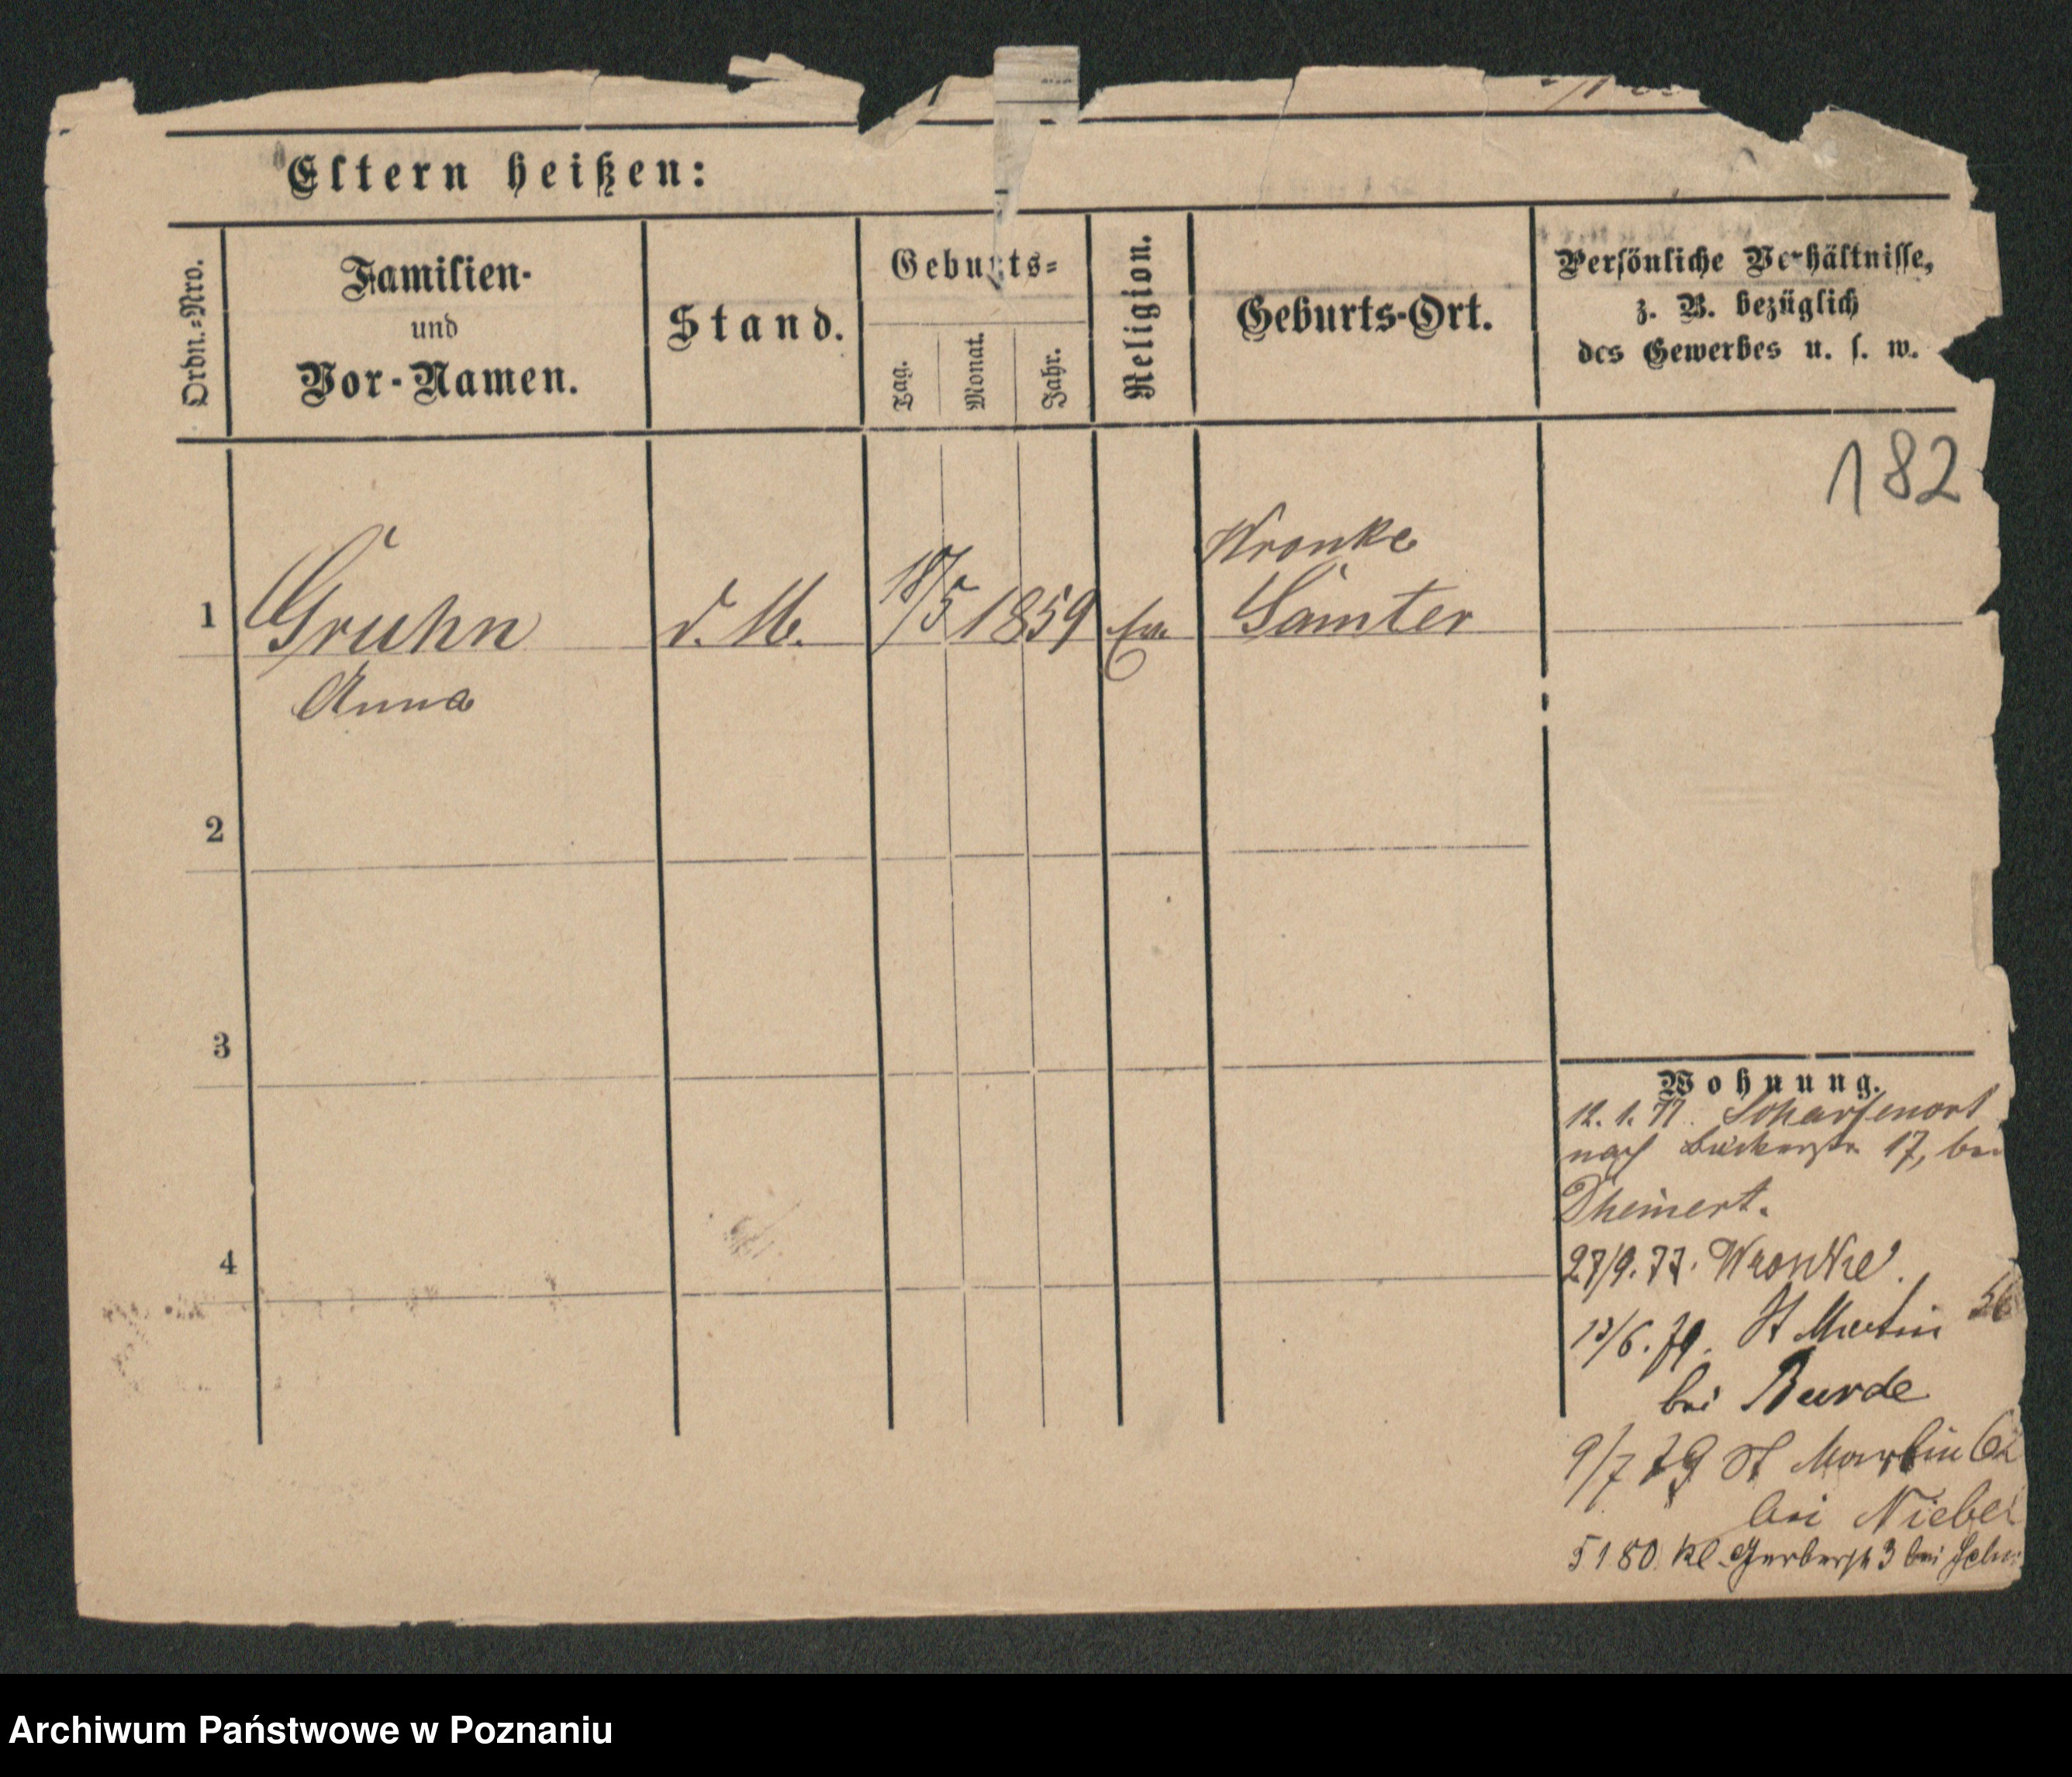 Eltern heißen:
Ordn.=Nro.
Familien-
und
Vor-Namen.
Stand.
Geburts=
Tag.
Monat.
Jahr.
Religion.
Geburts-Ort.
Persönliche Verhältnisse,
z. B. bezüglich
des Gewerbes u. s. w.
182
Wronke
1 Gruhn d. M. 18/5 1859 ev. Samter
Anna
2
3
4
Wohnung.
12. 1. 77. Scharfenort
nach Bäckerstr. 17, bei
Dheinert.
27/9. 77. Wronke.
13/6. 79. St Martin 56
bei Burde
9/7 79 St Martin 62
bei Nieber
5 1 80. Kl. Gerberstr 3 bei
Archiwum Państwowe w Poznaniu